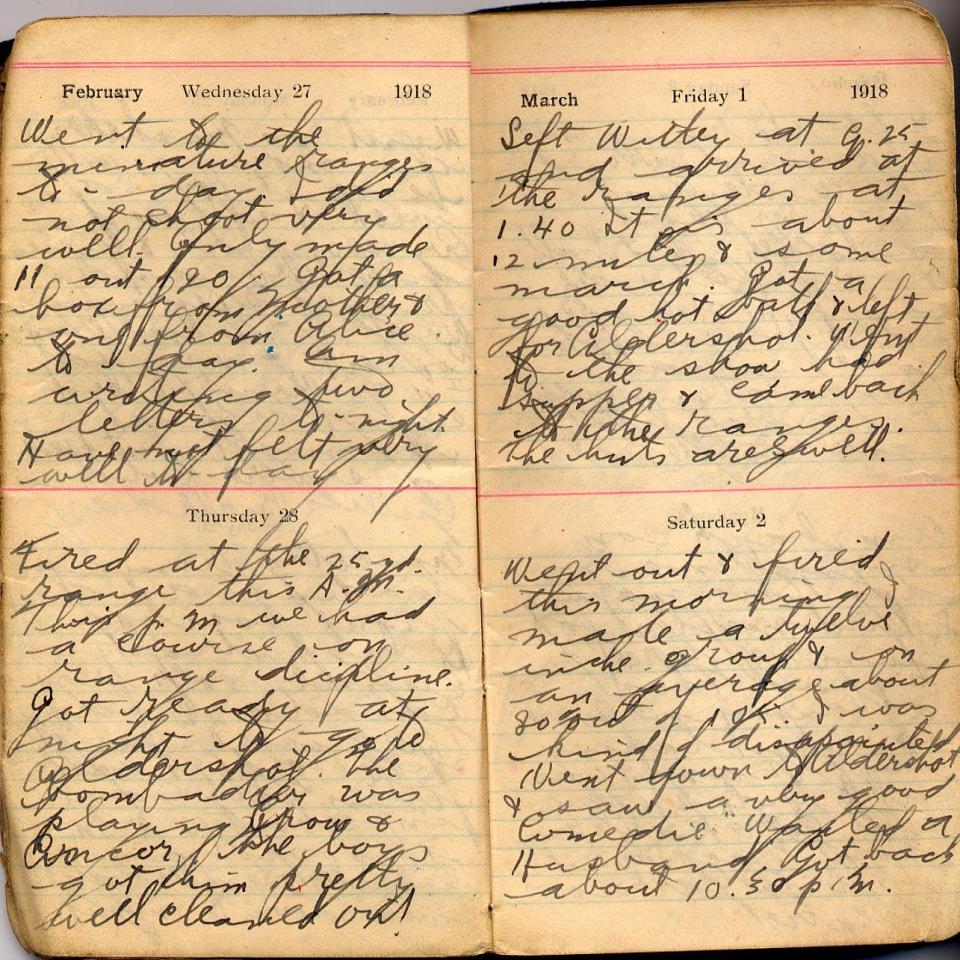 February Wednesday 27 1918
Went to the
minature ranges
to-day I did
not shoot very
well. Only made
11 out of 20. Got a
box from Mother &
one from Alice
to-day. Am
writing two
letters to-night
Have not felt very
well to-day
Thursday 28
Fired at the 25 yd.
range this A.M.
This p.m we had
a course on
range dicipline.
Got ready at
night to go to
Aldershot. The
Bombadier was
playing Crow &
Ancor, the boys
got him pretty
well cleaned out
March Friday 1 1918
Left Witley at 9.25
and arrived at
the ranges at
1.40 It is about
12 miles & some
march. Got a
good hot bath & left
for Aldershot. Went
to the show had
supper & came back
to the ranges.
the huts are swell.
Saturday 2
Went out & fired
this morning I
made a twelve
inche group & on
an average about
80 out of I was
kind of disappointed
Went down Aldershot
& saw a very good
Comedie "Wanted a
Husband Got back
about 10.30 p.m.